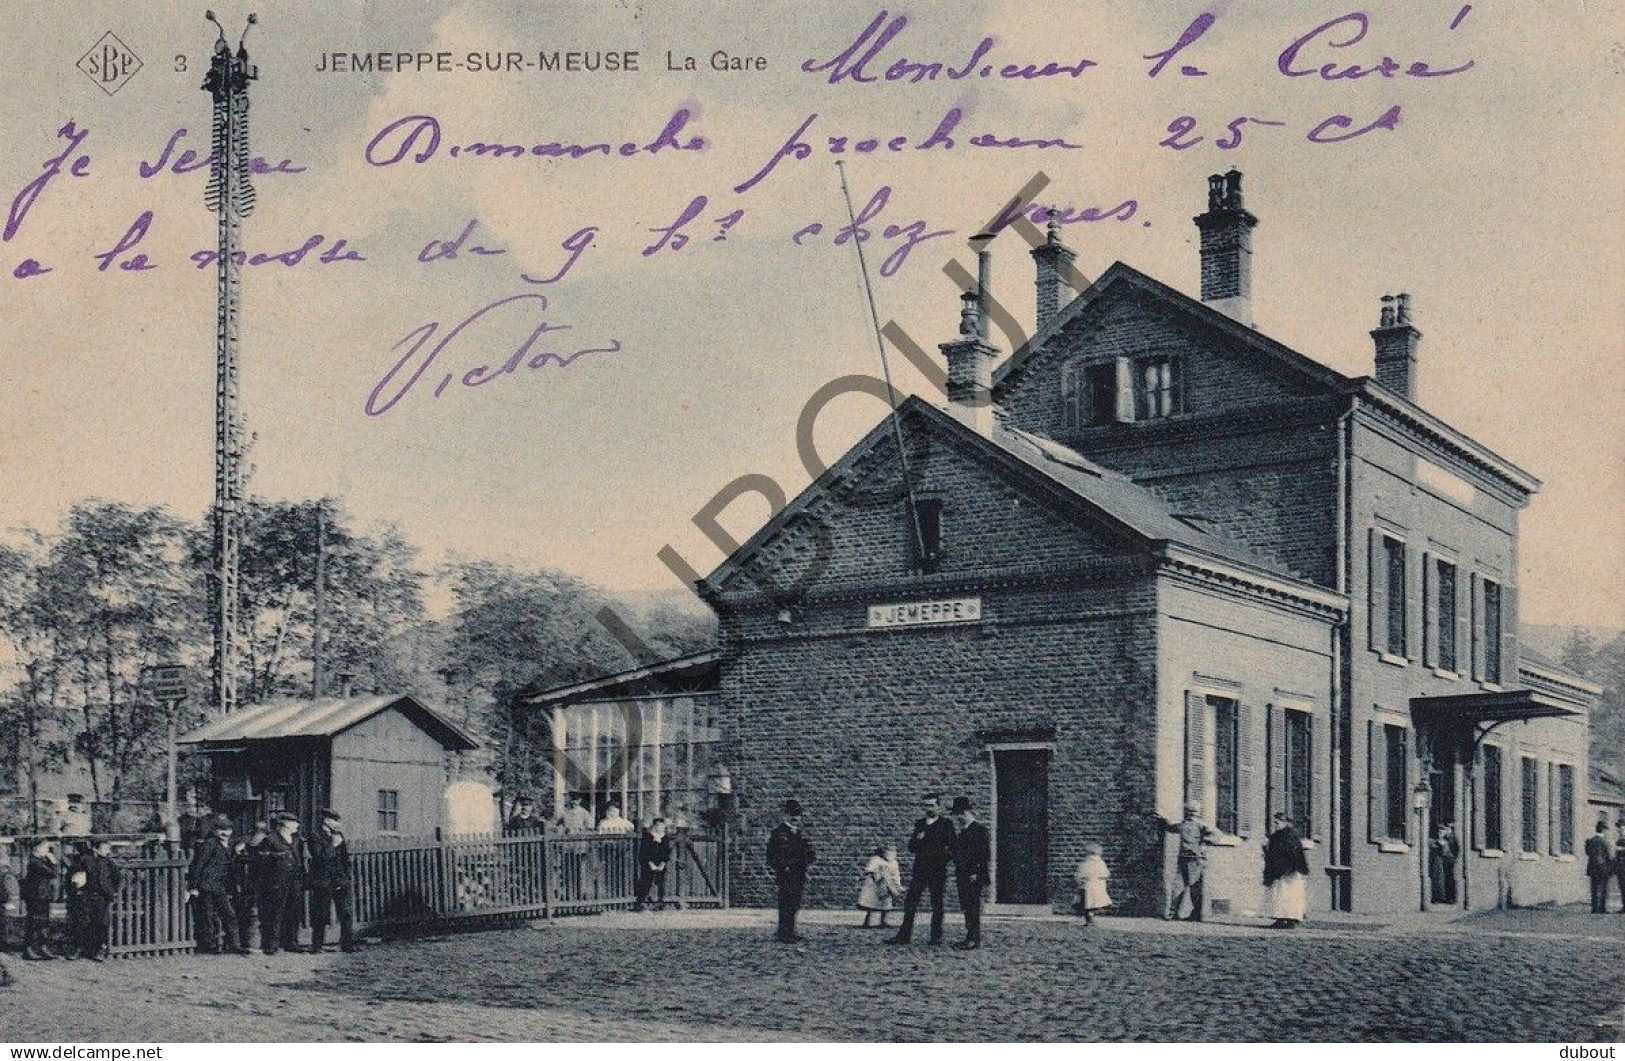 SBP 3 JEMEPPE-SUR-MEUSE La Gare
Monsieur le Curé
Je serai Dimanche prochain 25 Ct
a la messe de 9 hs chez vous.
Victor
JEMEPPE
DUBOUT
delcampe.net
dubout